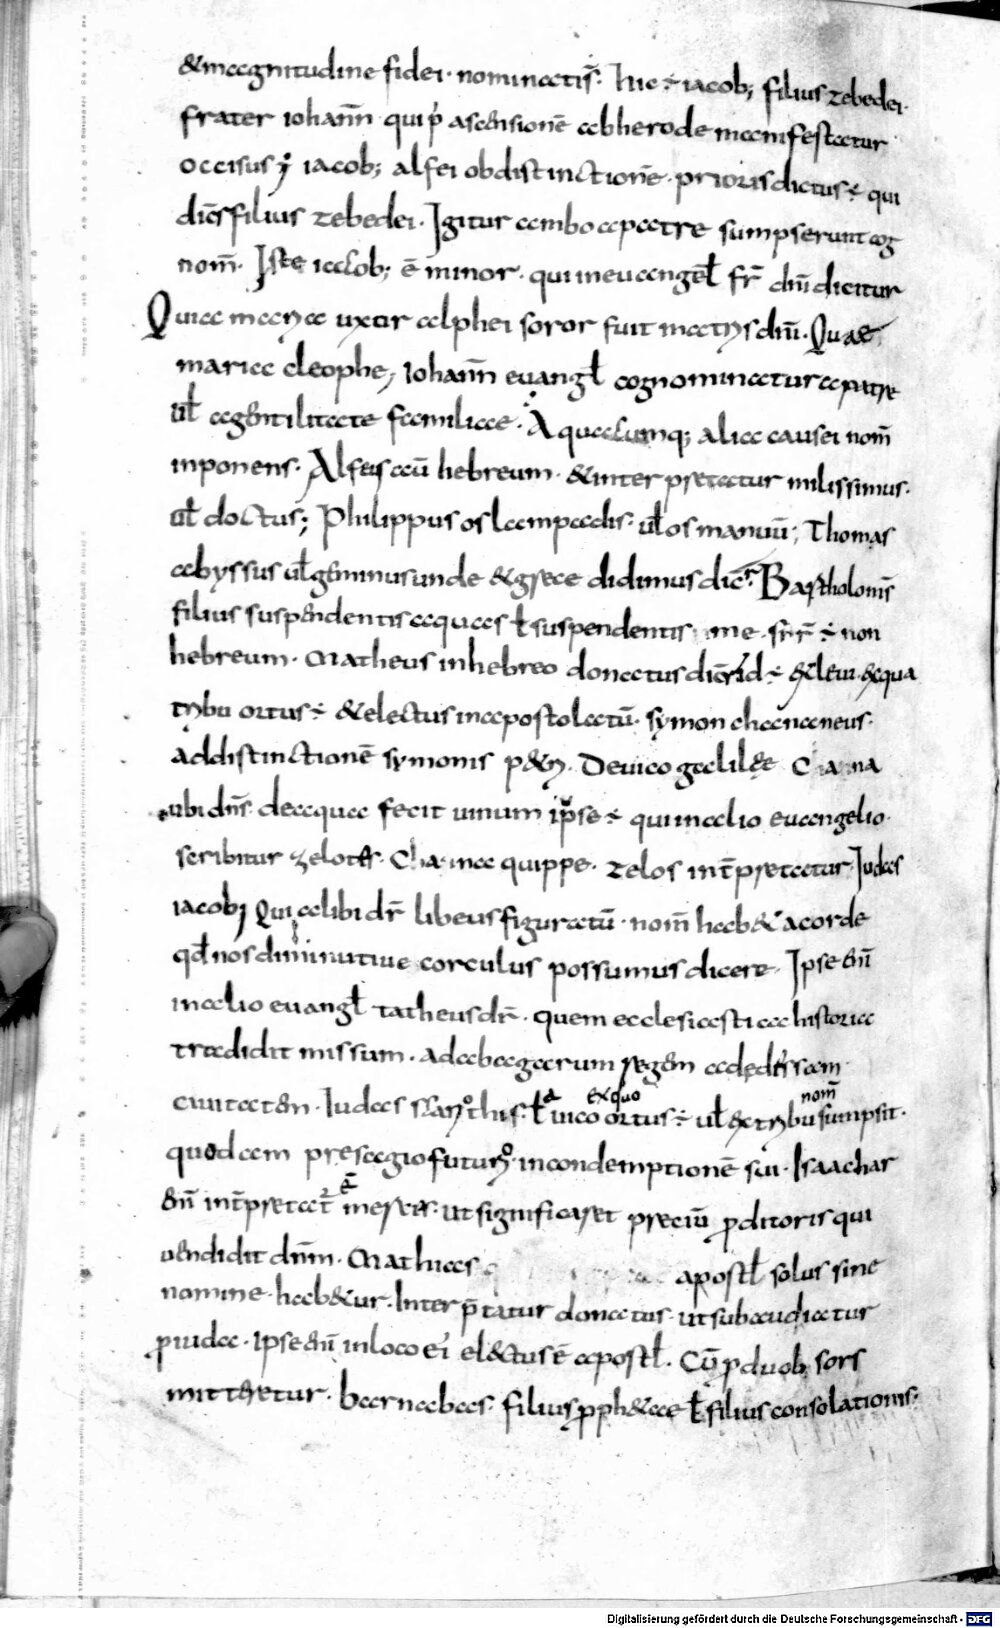 & magnitudine fidei · nominatis̄ · hic ÷ iacob; filius zebedei ·
frater iohann̄ · qui p̄ ascensionē ab herode manifestatur
occisus ÷ iacob; alfei ob distinctionē · prioris dictus ÷ qui
dic̄s filius zebedei · Igitur ambo a patre sumpserunt cog
nom̄ · Iste iacob; ē minor · qui in euangel̄ fr̄ dn̄i dicitur
Quia maria uxor alphei soror fuit matris dn̄i · Quae
maria cleophe; iohann̄ euangl̄ cognominatur a patre
ul̄ a gentilitate familiae · A quacumq; alia causei nom̄
inponens · Alfeus aū hebreum · & interpretatur milissimus ·
ul̄ doctus; Philippus os lampadis · ul̄ os manuū; Thomas
abyssus ul̄ geminus unde & grece didimus dic̄r Bartholom̄s
filius suspendentis aquas ł suspendentis me · sir̄ ÷ non
hebreum · Matheus in hebreo donatus dic̄r id ÷ & leui · & qua
tribu ortus ÷ & electus in apostolatū · symon chananeus ·
ad distinctionē symonis petri · De uico galileę Chana
ubi dn̄s · de aqua fecit uinum ipse ÷ qui in alio euangelio ·
scribitur zelotes · Chanaa quippe · zelos int̄pretatur · Iudas
iacobi Qui alibi dr̄ libeus figuratū · nom̄ hab& a corde
qđ nos diminutiue corculus possumus dicere · Ipse en̄
in alio euangl̄ tatheus dr̄ · quem ecclesiastica historia
tradidit missum · ad abagarum regem aedessam
ciuitatem · Iudas scariothis · ł a uico ex quo ortus ÷ ul̄ ex tribu nom̄ sumpsit ·
quodam presagio futuro · in condemptionē sui · Isaachar
en̄ int̄pretat̄ ē merces · ut significaret preciū p̄ditoris qui
uendidit dn̄m · Mathias apostl̄ solus sine
nomine · hab&ur · Interp̄tatur donatus · ut subaudiatur
p̄ iuda · ipse en̄ in loco ei; electus ē apostl̄ · Cū p̄ duob; sors
mitteretur · barnabas · filius p̄ph&ae ł filius consolationis ·
Digitalisierung gefördert durch die Deutsche Forschungsgemeinschaft - DFG